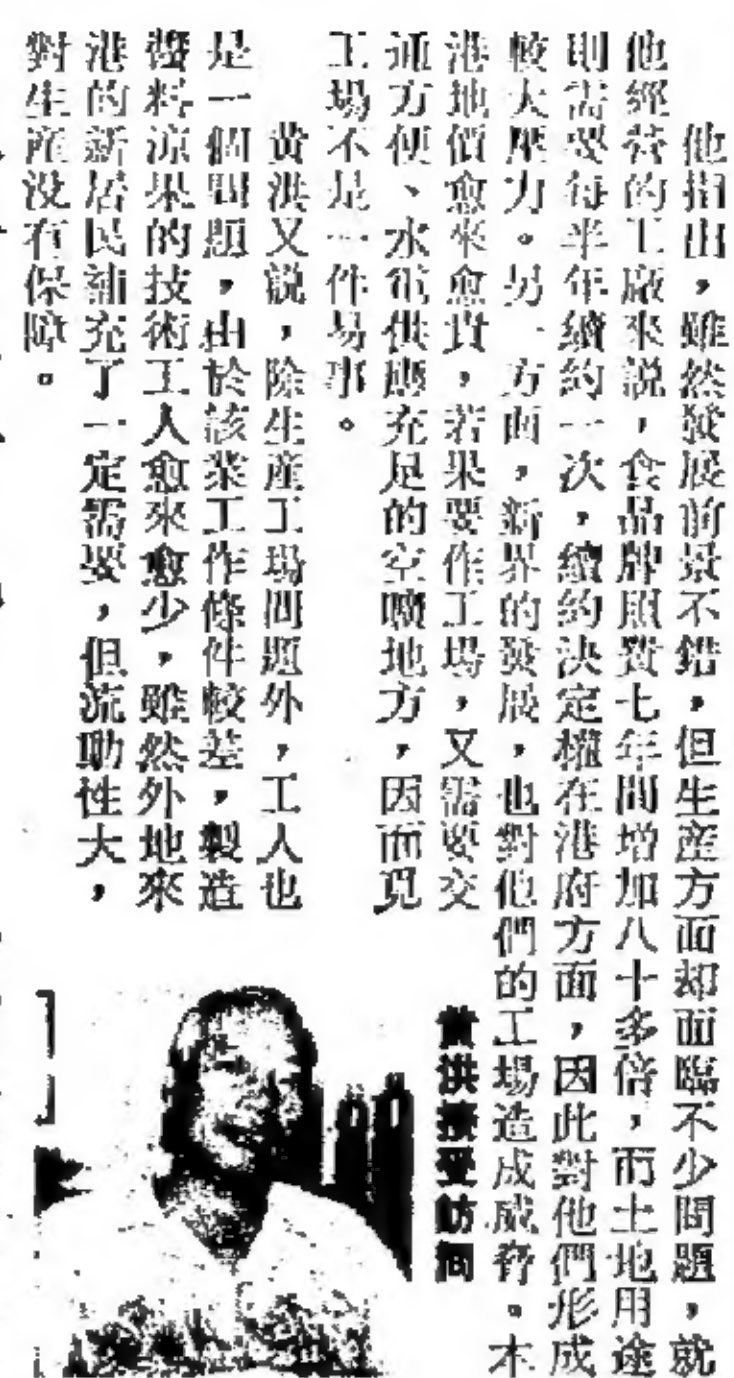 他指出，雖然發展前景不錯，但生産方面却面臨不少問題，就
他經營的工廠來説，食品牌照費七年間增加八十多倍，而土地用途
則需要每半年續約一次，續約決定權在港府方面，因此對他們形成
較大壓力。另一方面，新界的發展，也對他們的工場造成威脅。本
港地價愈來愈貴，若果要作工場，又需要交
通方便、水電供應充足的空曠地方，因而覓
工場不是一件易事。
黄洪又説，除生産工場問題外，工人也
是一個問題，由於該業工作條件較差，製造
醬料涼果的技術工人愈來愈少，雖然外地來
港的新居民補充了一定需要，但流動性大，
對生産没有保障。
黄洪接受訪問